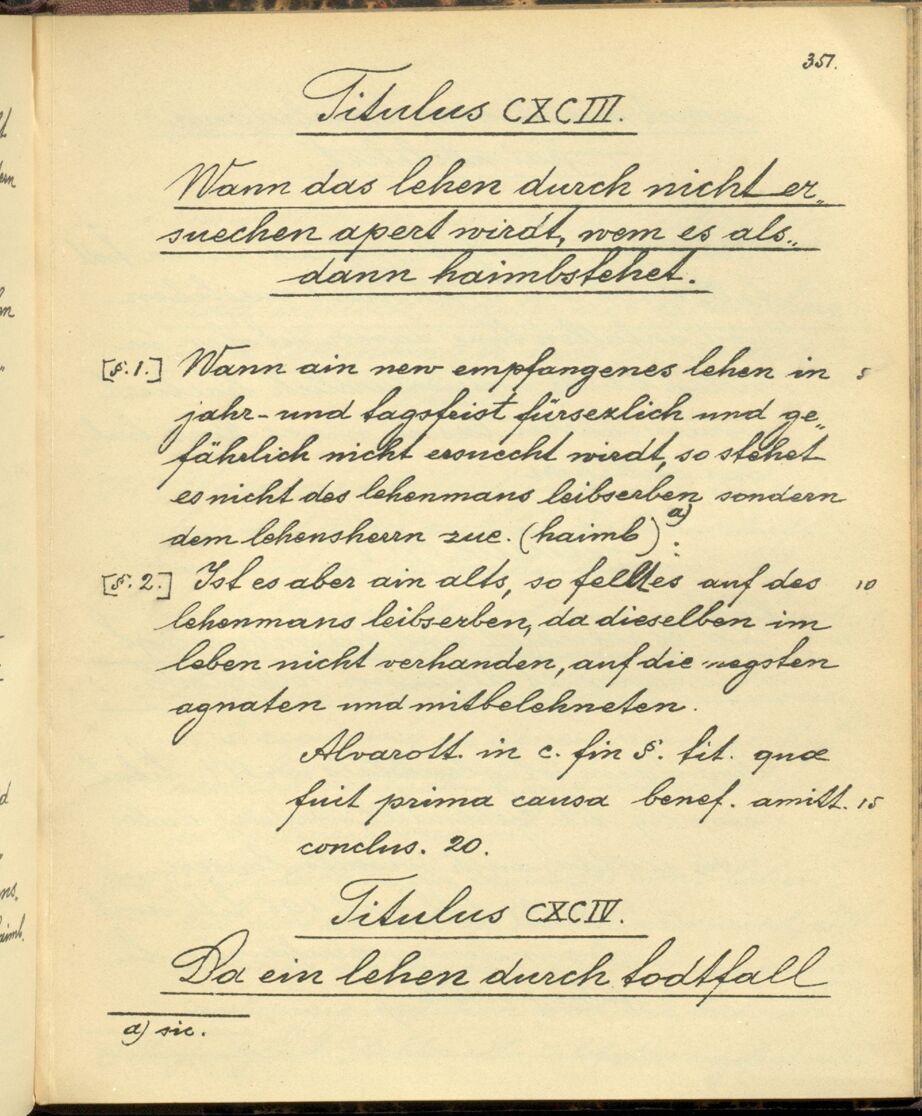 351.
Titulus CXCIII.
Wann das lehen durch nicht er„
suechen apert wirdt, wem es als„
dann haimbstehet.
[§. 1.] Wann ain new empfangenes lehen in 5
jahr- und tagsfrist fürsezlich und ge„
fährlich nicht ersuecht wirdt, so stehet
es nicht des lehenmans leibserben sondern
dem lehensherrn zue. (haimb) a).
[§. 2.] Ist es aber ain alts, so felltes auf des 10
lehenmans leibserben, da dieselben im
leben nicht verhanden, auf die negsten
agnaten und mitbelehneten.
Alvarott. in c. fin §. tit. quæ
fuit prima causa benef. amitt. 15
conclus. 20.
Titulus CXCIV.
Da ein lehen durch todtfall
a) sic.